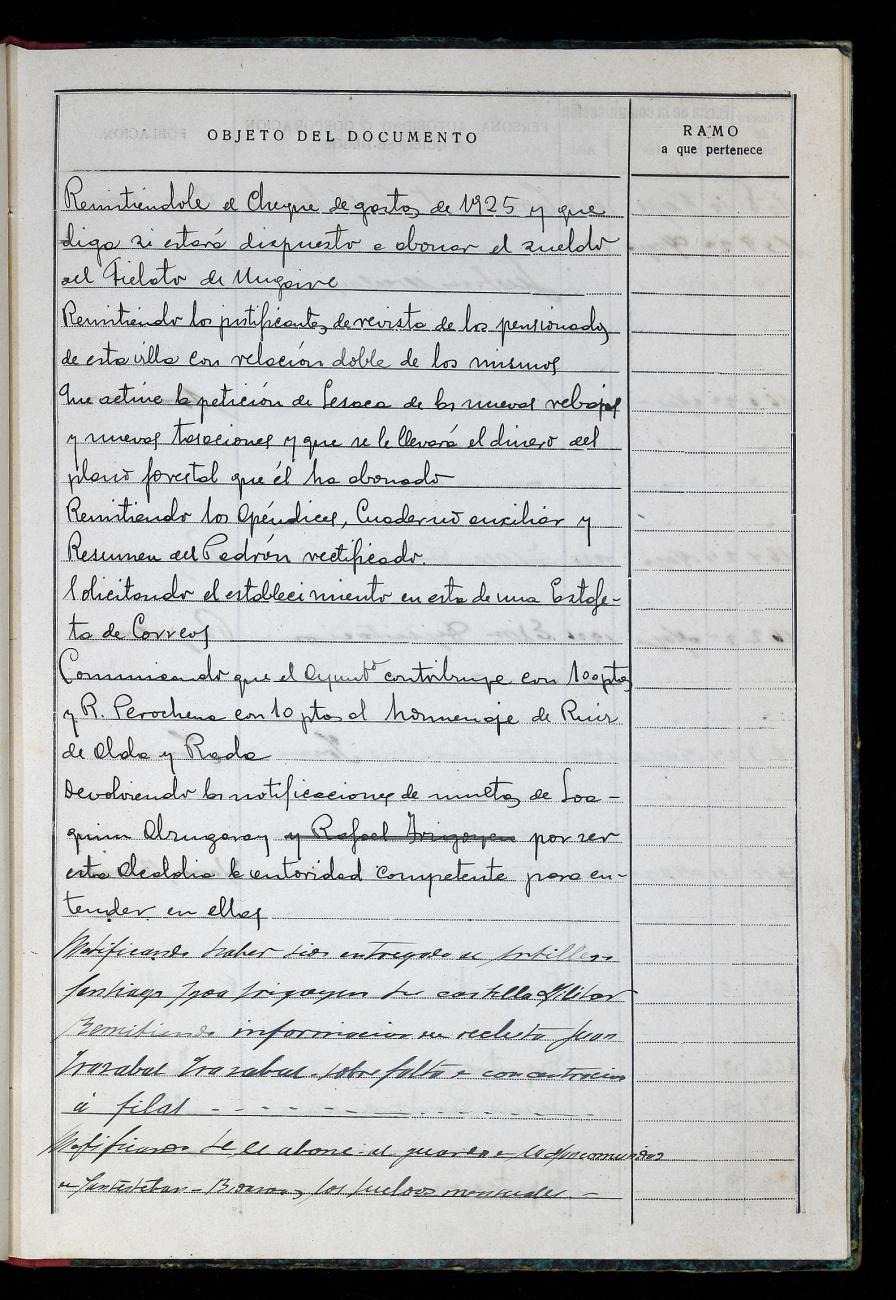 OBJETO DEL DOCUMENTO
RAMO
a que pertenece
Remitiendole el Cheque de gastos de 1925 y que
diga si estará dispuesto a abonar el sueldo
del Fielato de Mugaire
Remitiendo los justificantes de revista de los pensionados
de esta villa con relación doble de los mismos
Que active la petición de Lesaca de las nuevas rebajas
y nuevas tasaciones y que se le llevará el dinero del
plano forestal que él ha abonado
Remitiendo los Apéndices, Cuaderno auxiliar y
Resumen del Padrón rectificado.
Solicitando el establecimiento en esta de una Estafe-
ta de Correos
Comunicando que el Ayuntº contribuye con 100 ptas
y R. Perochena con 10 ptas al homenaje de Ruiz
de Alda y Rada
Devolviendo las notificaciones de multas de Joa-
quin Abrugaray y Rafael Irigoyen por ser
esta Alcaldia la autoridad competente para en-
tender en ellas
Notificando haber sido entregada al
Santiago Irigoyen la cartilla Militar
Remitiendo informacion recluta Juan
Irazabal Irazabal sobre falta a concentracion
á filas
Notificando se le abone al guarda
Santesteban los sueldos mensuales